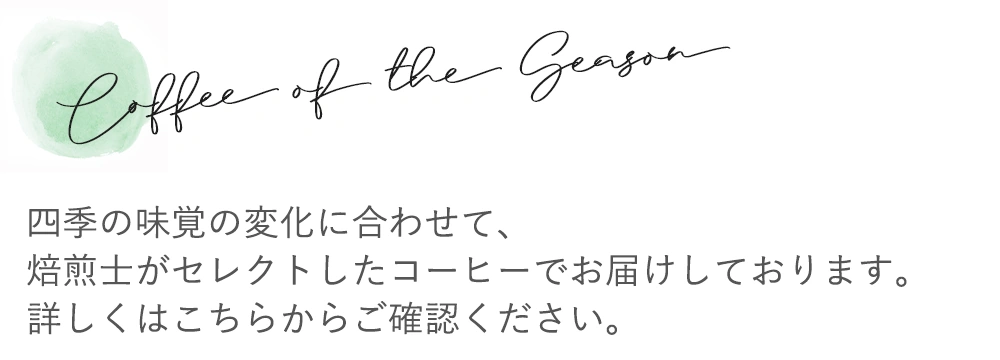 Coffee of the Season
四季の味覚の変化に合わせて、
焙煎士がセレクトしたコーヒーでお届けしております。
詳しくはこちらからご確認ください。